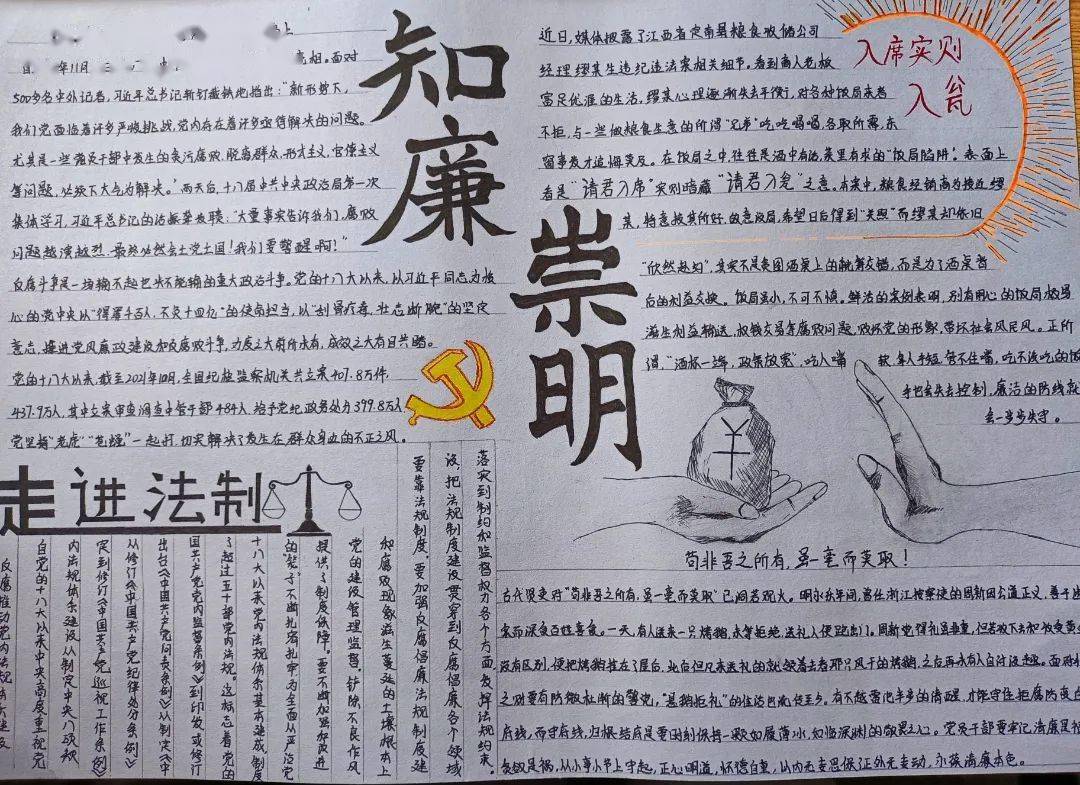 知廉
崇明
上
年11月
亮相。面对
500多名中外记者,习近平总书记斩钉截铁地指出:“新形势下,
我们党面临着许多严峻挑战,党内存在着许多亟待解决的问题。
尤其是一些党员干部中发生的贪污腐败,脱离群众,形式主义,官僚主义
等问题,必须下大气力解决。”两天后,十八届中共中央政治局第一次
集体学习,习近平总书记的话振聋发聩:“大量事实告诉我们,腐败
问题越演越烈,最终必然会亡党亡国!我们要警醒啊!”
反腐斗争是一场输不起也决不能输的重大政治斗争。党的十八大以来,以习近平同志为核
心的党中央以“得罪千百人,不负十四亿”的使命担当,以“刮骨疗毒,壮士断腕”的坚定
意志,推进党风廉政建设和反腐败斗争,力度之大前所未有,成效之大有目共睹。
党的十八大以来,截至2021年10月,全国纪检监察机关共立案407.8万件,
437.9万人,其中立案审查调查中管干部484人,给予党纪政务处分399.8万人
党坚持“老虎”“苍蝇”一起打,切实解决了发生在群众身边的不正之风。
入席实则
入瓮
近日,媒体披露了江西省定南县粮食收储公司
经理缪某生违纪违法案相关细节。看到商人老板
富足优渥的生活,缪某心理逐渐失去平衡,对各种饭局来者
不拒,与一些做粮食生意的所谓“兄弟”吃吃喝喝,各取所需,东
窗事发才追悔莫及。在饭局之中,往往是酒中有话,菜里有求的“饭局陷阱”。表面上
看是“请君入席”实则暗藏“请君入瓮”之意。本案中,粮食经销商为接近缪
某,特意投其所好,做意饭局,希望日后得到“关照”而缪某却依旧
“欣然赴约”,其实不是贪图酒桌上的觥筹交错,而是为了酒桌背
后的利益交换。饭局虽小,不可不慎。鲜活的案例表明,别有用心的饭局极易
滋生利益输送,权钱交易等腐败问题,败坏党的形象,带坏社会风民风。正所
谓,“酒杯一端,政策放宽”,吃人嘴软,拿人手短,管不住嘴,吃不该吃的饭
手把会失去控制,廉洁的防线就
会一步步失守。
¥
苟非吾之所有,虽一毫而莫取!
古代贤吏对“苟非吾之所有,虽一毫而莫取”已洞若观火。明永乐年间,曾任浙江按察使的周新因公道正义,善于
案而深受百姓喜爱。一天,有人送来一只烤鹅,未等拒绝,送礼人便跑出门。周新觉得礼虽轻,但若放下去和收受
没有区别,便把烤鹅挂在了屋后,此后但凡来送礼的就领着去看那只风干的烤鹅,之后再未有人自讨没趣。面对
之则要有防微杜渐的警觉,“悬鹅拒礼”的佳话流传至今。有不越雷池半步的清醒,才能守住拒腐防变
底线,而守底线,归根结底是要时刻保持一颗如履薄冰,如临深渊的敬畏之心。党员干部要牢记,清廉是福
贪欲是祸,从小事小节上守起,正心明道,怀德自重,以内无妄思保证外无妄动,永葆清廉本色。
走进法制
落实到制约和监督权力各个方面,发挥法规约束
设,把法规制度建设贯穿到反腐倡廉各个领域
要靠法规制度,要加强反腐倡廉法规制度建
和腐败现象滋生蔓延的土壤,根本上
党的建设管理监督,铲除不良作风
提供了制度保障。要不断加强和改进
的“笼子”不断扎密扎牢,为全面从严治党
十八大以来党内法规体系基本建成,制度
了超过五十部党内法规。这标志着党的
国共产党党内监督条例》到印发或修订
出台《中国共产党问责条例》从制定《中
从修订《中国共产党纪律处分条例》
定到修订《中国共产党巡视工作条例》
内法规体系建设从制定中央八项规
自党的十八大以来中央高度重视党
反腐推动党内法规体系建设